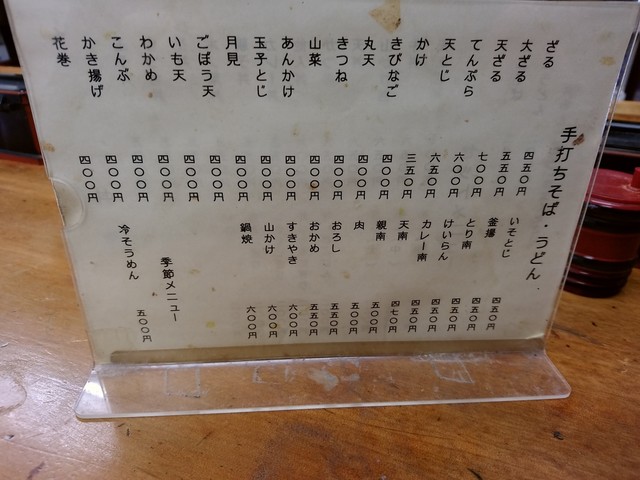 手打ちそば・うどん
ざる 四五〇円
大ざる 五五〇円
天ざる 七〇〇円
てんぷら 六〇〇円
天とじ 六五〇円
かけ 三五〇円
きびなご 四〇〇円
丸天 四〇〇円
きつね 四〇〇円
山菜 四〇〇円
あんかけ 四〇〇円
玉子とじ 四〇〇円
月見 四〇〇円
ごぼう天 四〇〇円
いも天 四〇〇円
わかめ 四〇〇円
こんぶ 四〇〇円
かき揚げ 四〇〇円
花巻 四〇〇円
いそとじ 四五〇円
釜揚 四五〇円
とり南 四五〇円
けいらん 四五〇円
カレー南 四五〇円
天南 四七〇円
親南 五〇〇円
肉 五〇〇円
おろし 五五〇円
おかめ 五五〇円
すきやき 六〇〇円
山かけ 六〇〇円
鍋焼 六〇〇円
季節メニュー
冷そうめん 五〇〇円